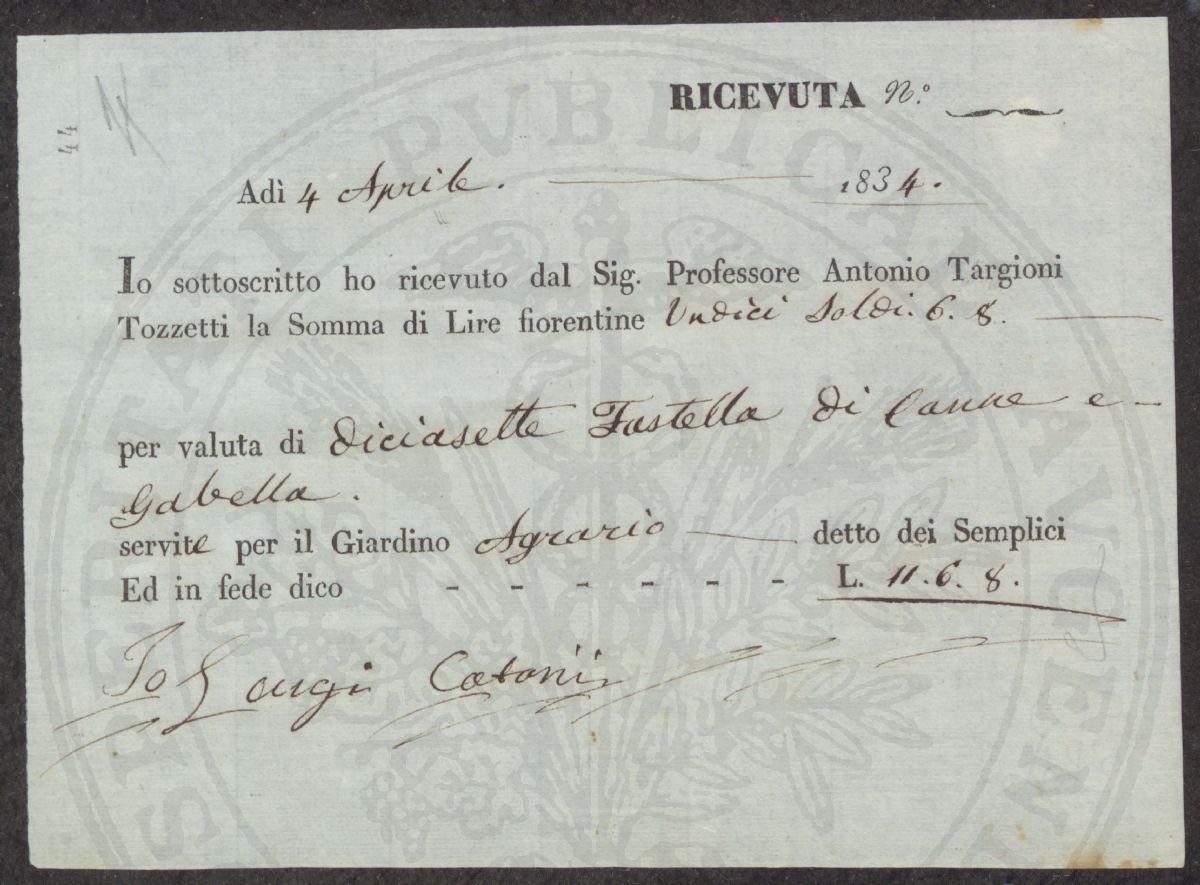 44
RICEVUTA N.°
Adì 4 Aprile. 1834.
Io sottoscritto ho ricevuto dal Sig. Professore Antonio Targioni
Tozzetti la Somma di Lire fiorentine Undici Soldi. 6. 8.
per valuta di diciasette Fastella di Canne e
Gabella.
servite per il Giardino Agrario detto dei Semplici
Ed in fede dico - - - - - - L. 11. 6. 8.
Io Luigi Catoni